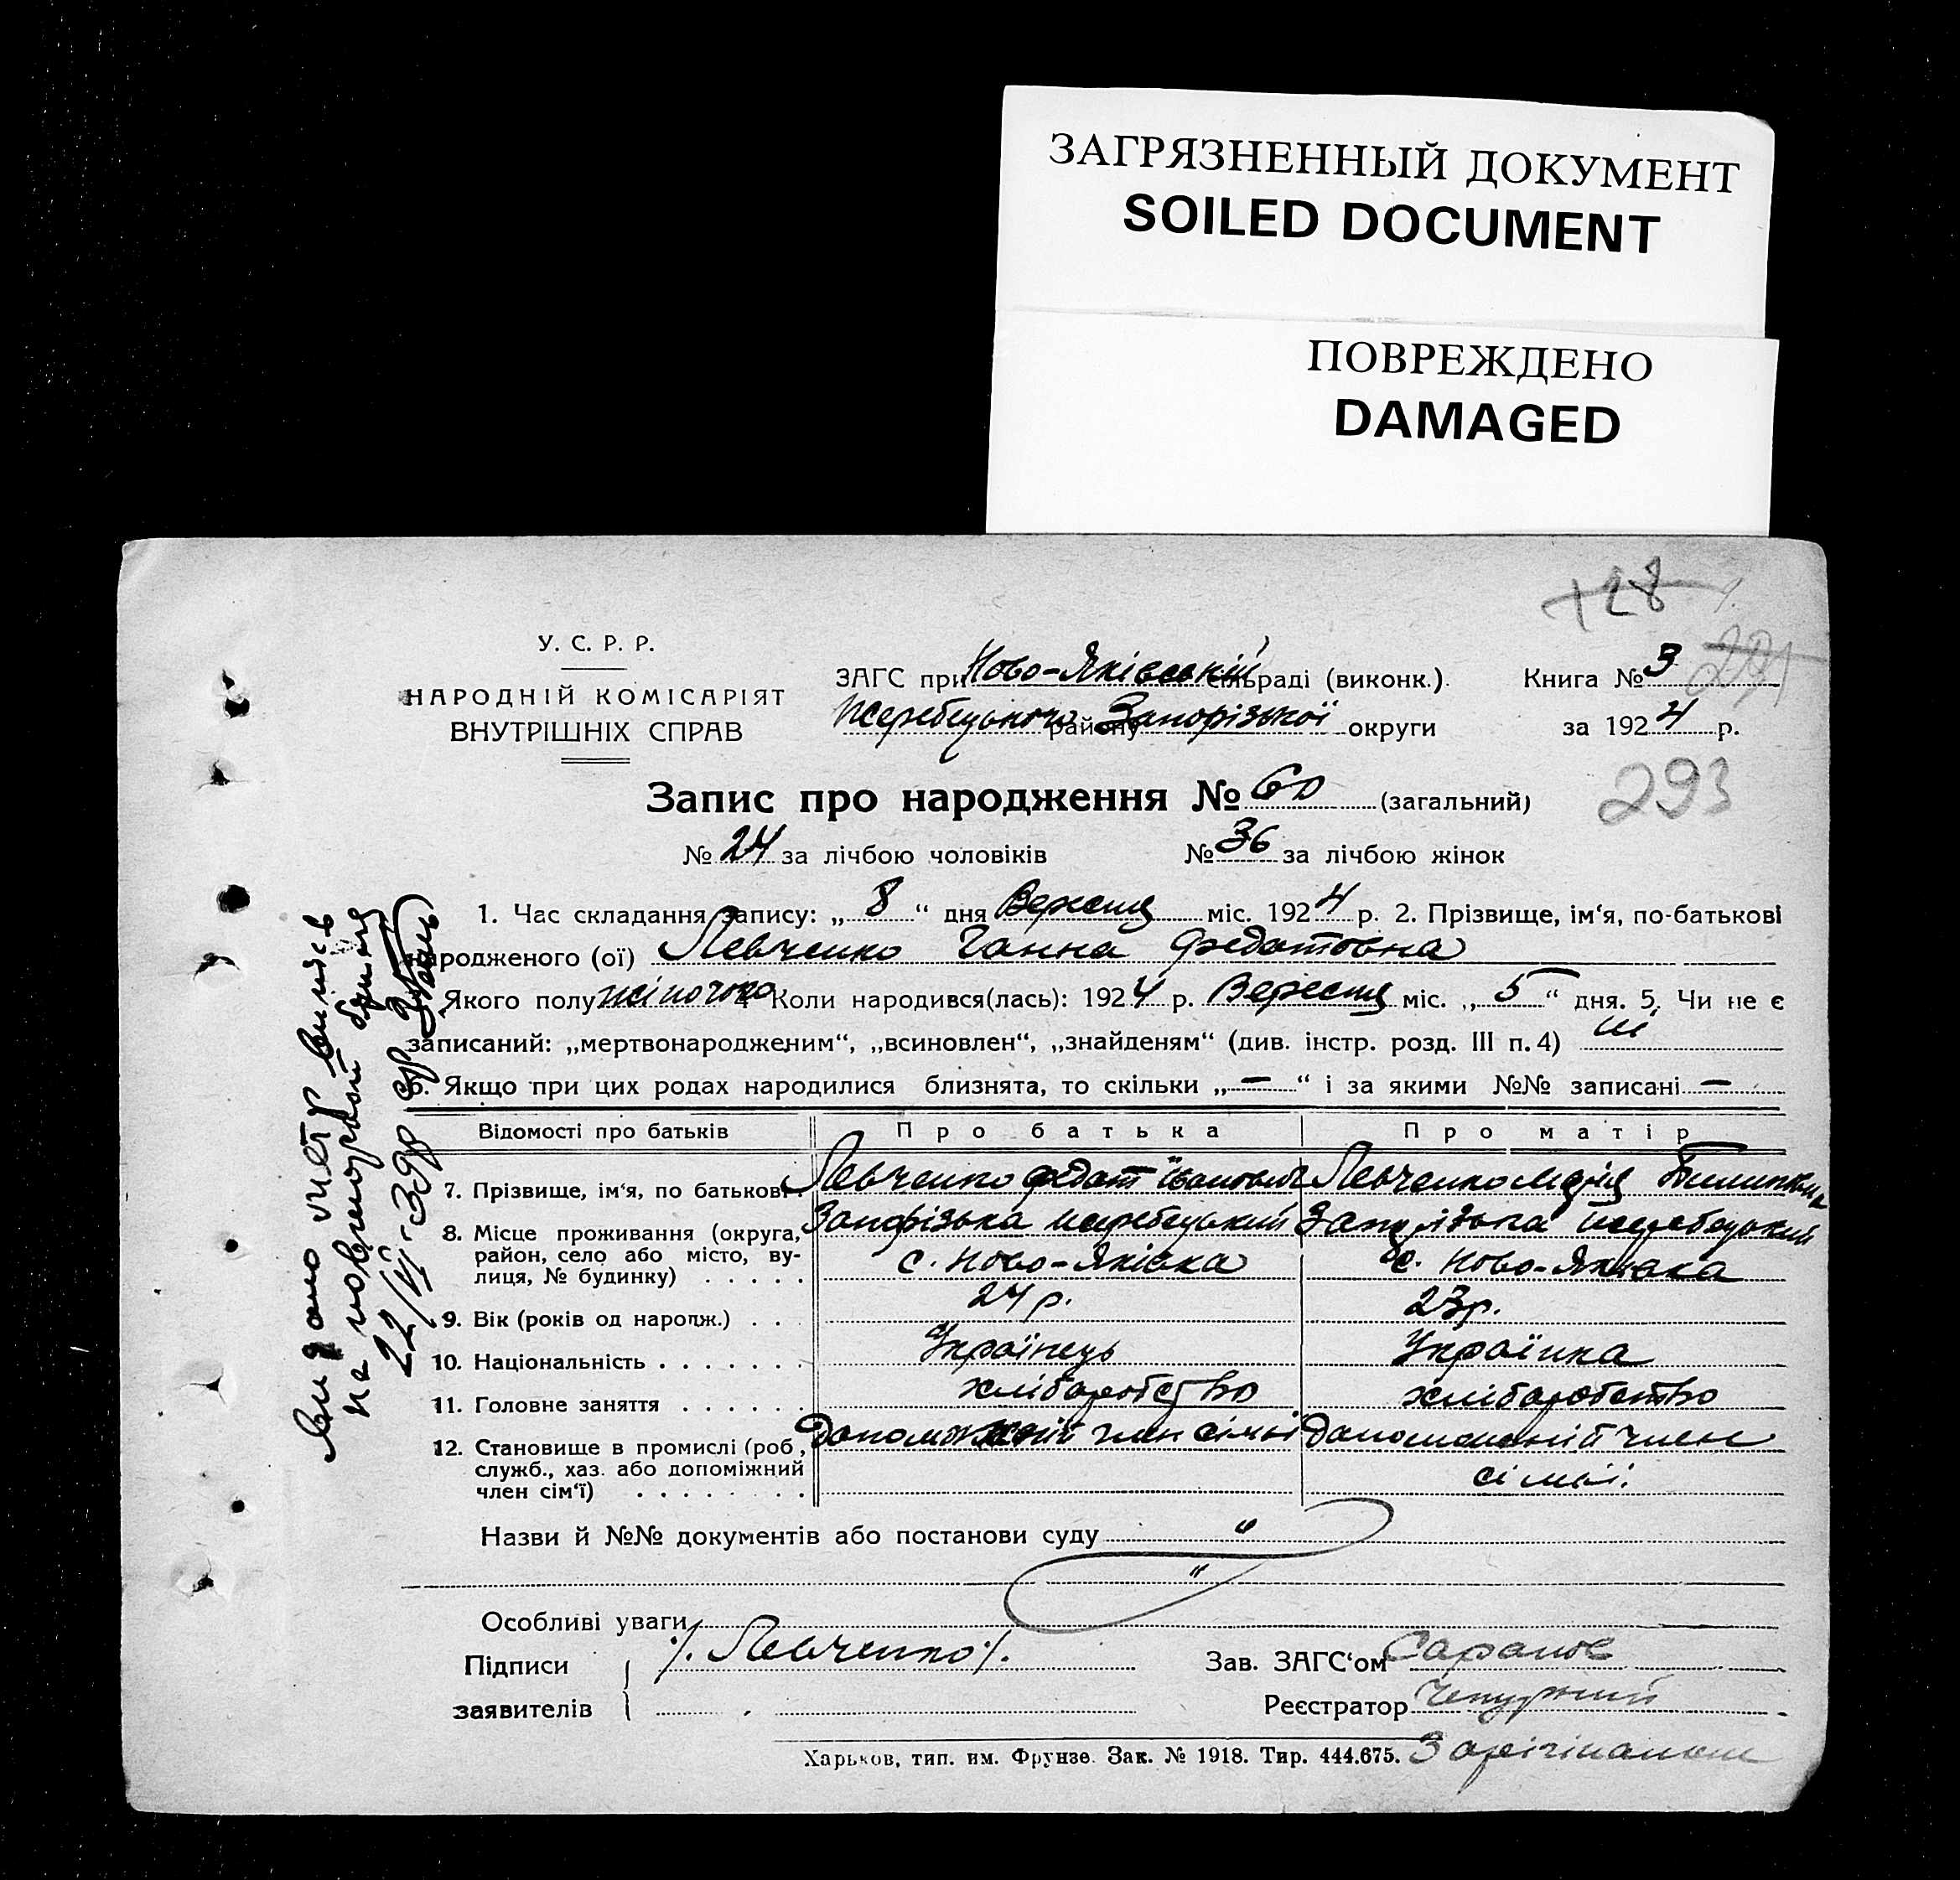 ЗАГРЯЗНЕННЫЙ ДОКУМЕНТ
SOILED DOCUMENT
ПОВРЕЖДЕНО
DAMAGED
128
У. С. Р. Р.
НАРОДНІЙ КОМІСАРІЯТ
ВНУТРІШНІХ СПРАВ
ЗАГС при Ново-Яківській сільраді (виконк.).
Жеребецького району Запорізької округи
Книга № 3
за 1924 р.
293
Запис про народження № 60 (загальний)
№ 24 за лічбою чоловіків № 36 за лічбою жінок
1. Час складання запису: „ 8 “ дня Вересня міс. 1924 р. 2. Прізвище, ім‘я, по-батькові
народженого (ої) Левченко Ганна Федотовна
Якого полу жіночого Коли народився(лась): 1924 р. Вересня міс. „ 5 “ дня. 5. Чи не є
записаний: „мертвонародженим“, „всиновлен“, „знайденям“ (див. інстр. розд. III п. 4)
6. Якщо при цих родах народилися близнята, то скільки „ — “ і за якими №№ записані —
Відомості про батьків Про батька Про матір
7. Прізвище, ім‘я, по батькові Левченко Федот Іванович Левченко Марія
8. Місце проживання (округа, район, село або місто, вулиця, № будинку) Запорізька Жеребецький Запорізька Жеребецький
с. Ново-Яківка с. Ново-Яківка
9. Вік (років од народж.) . . 24 р. 23 р.
10. Національність . . . . . . . Українець Українка
11. Головне заняття . . . . . . хліборобство хліборобство
12. Становище в промислі (роб., служб., хаз. або допоміжний член сім‘ї) . . . . . . . . допоможний член сімьі допоможній член
сімьі.
Назви й №№ документів або постанови суду "
"
Особливі уваги
Підписи /. Левченко /.
заявителів
Зав. ЗАГС‘ом Саранов
Реєстратор Чепурний
Харьков, тип. им. Фрунзе. Зак. № 1918. Тир. 444.675. З орігіналом
22/VI-39р